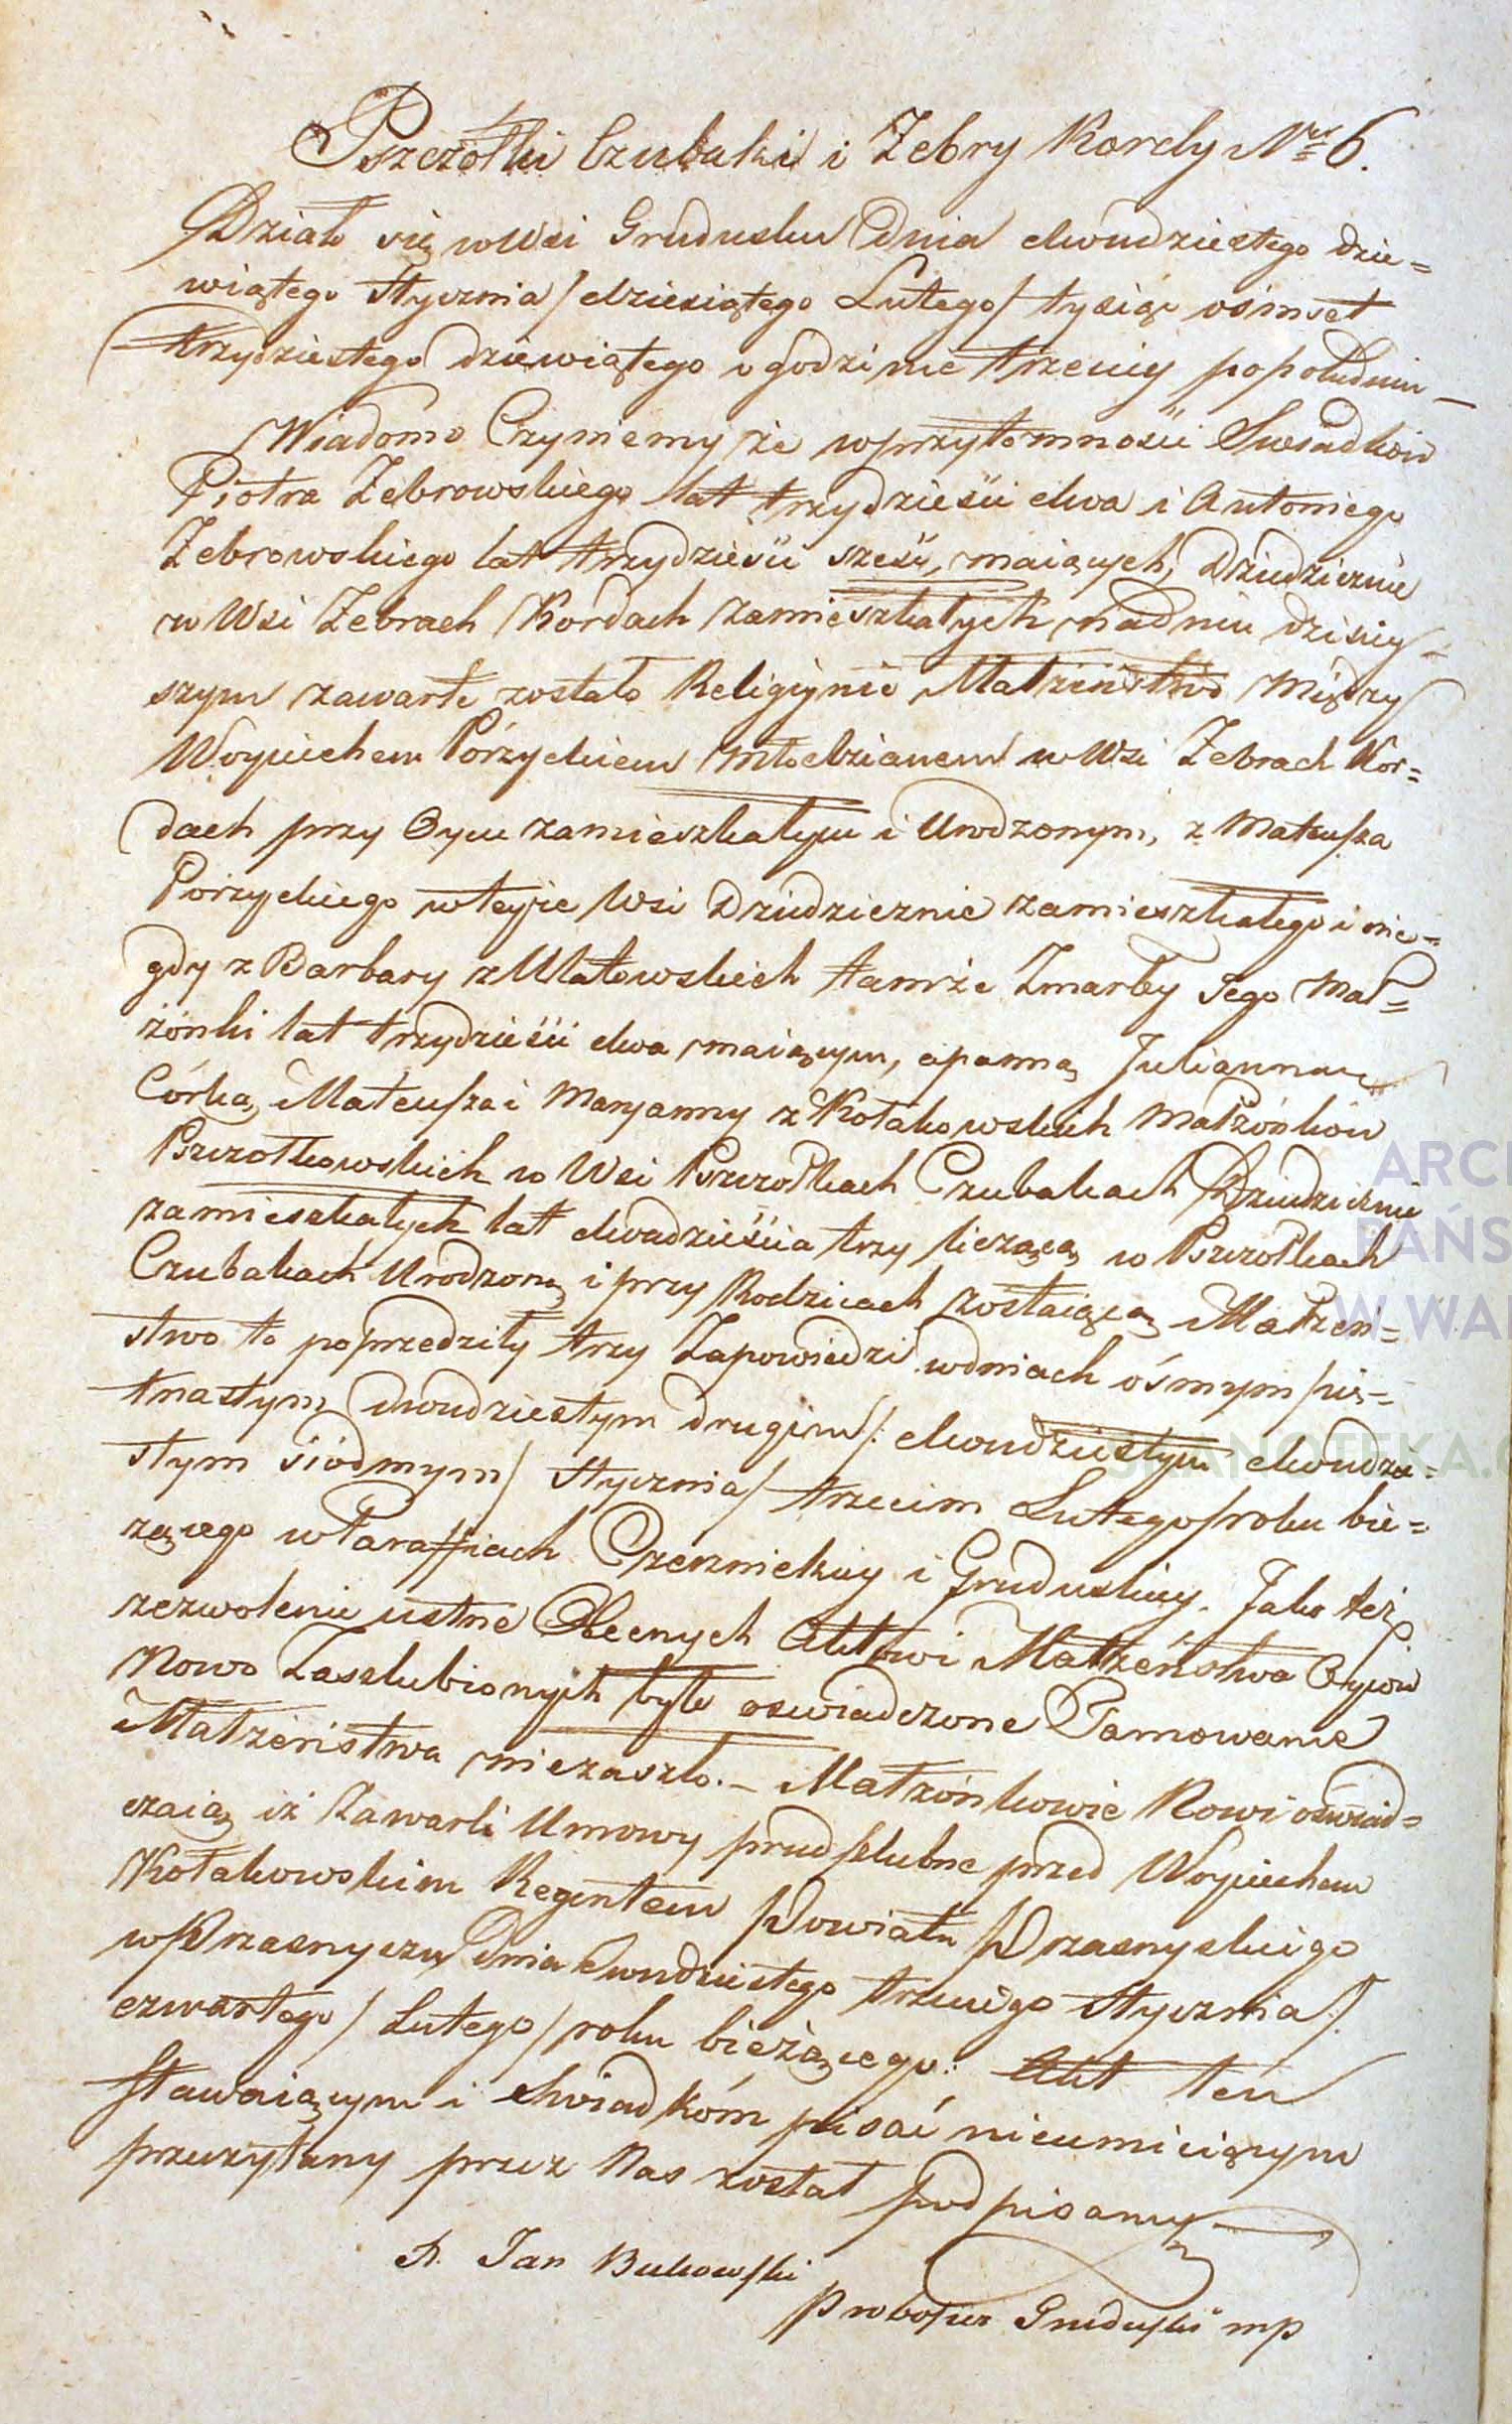 Pszczołki Czubaki i Zebry Kordy Nro 6.
Działo się w Wsi Grudusku Dnia dwudziestego dzie=
wiątego Stycznia / dziesiątego Lutego / tysiąc ośmset
trzydziestego dziewiątego o godzinie trzeciey popołudniu —
Wiadomo Czyniemy że w przytomności Swiadków
Piotra Zebrowskiego lat trzydzieści dwa i Antoniego
Zebrowskiego lat trzydzieści sześć, maiących, Dziedzicznie
w Wsi Zebrach Kordach zamieszkałych na dniu dzisiey=
szym zawarte zostało Religiynie Małżeństwo Między
Woyciechem Pórzyckiem Młodzianem w Wsi Zebrach Kor=
dach przy Oycu zamieszkałym i Urodzonym, z Mateusza
Pórzyckiego w teyże Wsi Dziedzicznie zamieszkałego i nie=
gdy z Barbary z Ulatowskich tamże Zmarłey Jego Mał=
żónki lat trzydzieści dwa maiącym, a panną Julianną
Córką Mateusza i Maryanny z Kołakowskich Małżónków
Pszczółkowskich w Wsi Pszczółkach Czubakach Dziedzicznie
zamieszkałych lat dwadzieścia trzy liczącą w Pszczółkach
Czubakach Urodzoną i przy Rodzicach zostaiącą Małżeń=
stwo to poprzedziły trzy Zapowiedzi w dniach ósmym pię=
tnastym dwudziestym drugim /: dwudziestym dwudzie=
stym siódmym / Stycznia / trzecim Lutego / roku bie=
żącego w Paraffiach Czernickiey i Gruduskiey. Jako też
zezwolenie ustne Obecnych Aktowi Małżeństwa Oyców
Nowo Zaszlubionych było oswiadczone Tamowanie
Małżeństwa niezaszło. — Małżónkowie Nowi oświad=
czaią iż Zawarli Umowy przedszlubne przed Woyciechem
Kołakowskim Regentem Powiatu Przasnyskiego
w Przasnyszu Dnia Dwudziestego trzeciego Stycznia /:
czwartego / Lutego / roku bieżącego: Akt ten
Stawaiącym i Swiadkóm pisać nieumieiącym
przeczytany przez Nas został podpisany
X. Jan Bukowski
Proboszcz Gruduski mp